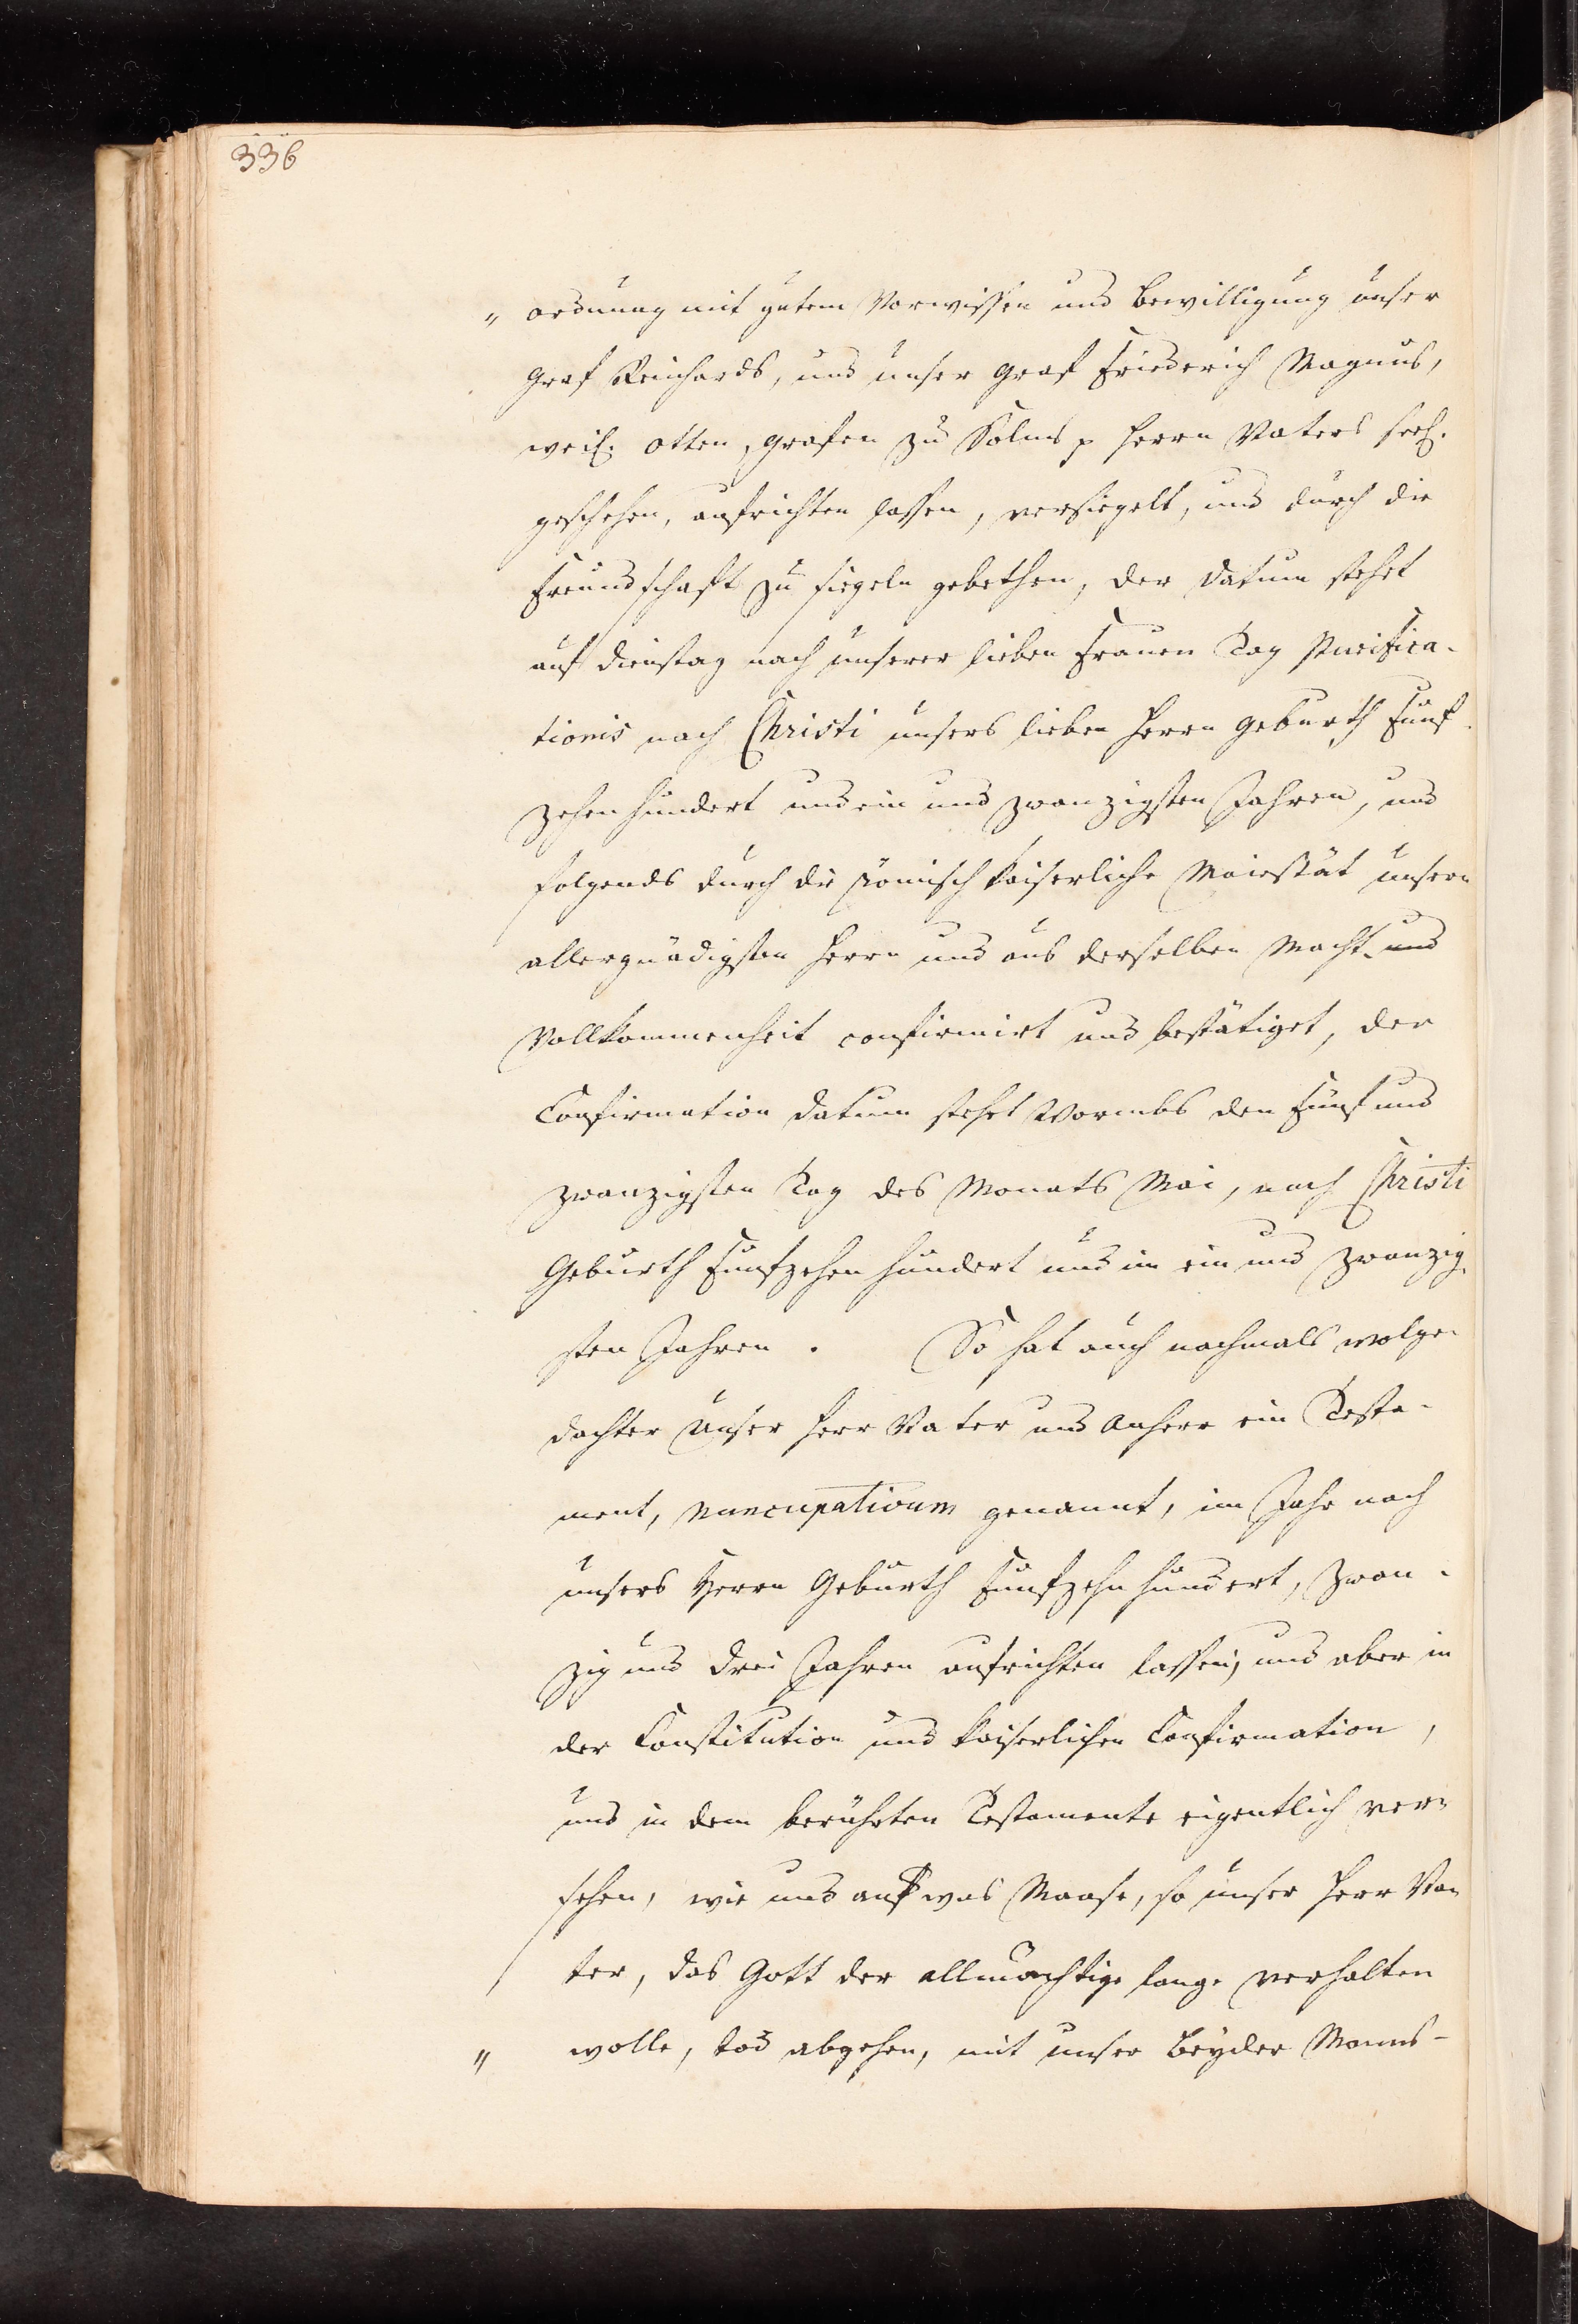 336
„ ordnung mit gutem Vorwissen und bewilligung unser
Graf Reinhards, und unser Graf Friederich Magnus,
weil. Otten, Grafen zu Solms p Herrn Vaters seel.
geschehen, aufrichten lassen, versiegelt, und durch die
Freundschaft zu siegeln gebethen, der Datum stehet
auf Dienstag nach unserer lieben Frauen Tag Purifica-
tionis nach Christi unsers lieben Herrn Geburth Funf-
zehen hundert und ein und zwanzigsten Jahren, und
folgends durch die Römisch Kaiserliche Maiestät unsern
allergnädigsten Herrn und aus derselben Macht und
Vollkommenheit confirmirt und bestätiget, der
Confirmation Datum stehet Wormbs den Fünf und
zwanzigsten Tag des Monats Mai, nach Christi
Geburth Funfzehen hundert und im ein und zwanzig-
sten Jahren. So hat auch nachmals wolge-
dachter Unser Herr Vater und Anherr ein Testa-
ment, nuncupativum genannt, im Jahr nach
unsers Herrn Geburth Funfzehn hundert, zwan-
zig und drei Jahren aufrichten lassen, und aber in
der Constitution und Kaiserlichen Confirmation,
und in dem berührten Testamente eigentlich ver-
sehen, wie und auf was Maase, so unser Herr Va-
ter, das Gott der allmachtige lange verhalten
„ wolle, tod abgehen, mit unser beyder Manns-